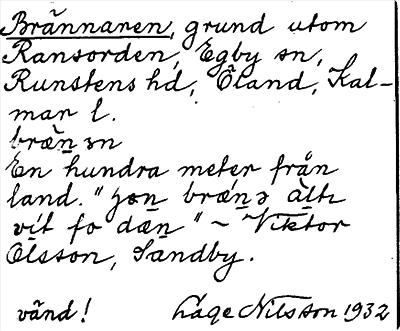 Brännaren, grund utom
Ransorden, Egby sn,
Runstens hd, Öland, Kal-
mar l.
bræn ən
En hundra meter från
land. "
vit fo dæn" ~ Viktor
Olsson, Sandby.
vänd! Låge Nilsson 1932